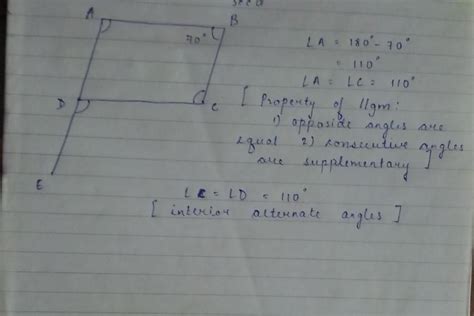 A
B
70°
∠A = 180° - 70°
= 110°
∠A = ∠C = 110°
[ Property of llgm:
1) opposide angles are
equal 2) consecutive angles
are supplementary ]
D
C
E
∠C = ∠D = 110°
[ interior alternate angles ]